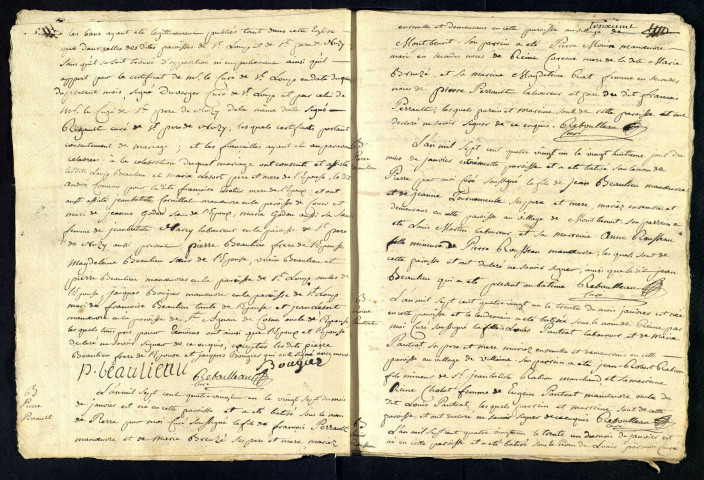 les bans ayant été légitimement publiés tant dans cette Eglise
que dans celles des dites paroisses de St Loup et de St pere de Nuzy
sans qu'il se soit trouvé d'opposition ni empechement ainsi qu'il
appert par le certificat de Mr le Curé de St Loup en date du
du present mois, signé Duverger Curé de St Loup et par celui de
Mr le Curé de St pere de Nuzy de la même date signé
Regault curé de St pere de Nuzy, lesquels certificats portant
consentement de mariage; et les fiançailles ayant été
celebrées; à la celebration duquel mariage ont consenti et assisté
les dits Loup Beaulieu et marie Lessort pere et mere de l'Epouse, le dit
André Corneau pour la dite françoise mere de l'Epoux; et ont
aussi assisté jean baptiste manœuvre en la paroisse de Cours et
mari de jeanne Godon de l'Epoux, marie Godon aussi sa
femme de jean baptiste laboureur en la paroisse de St pere
de Nuzy aussi present pierre Beaulieu frere de l'Epouse
Magdeleine Beaulieu sœur de l'Epouse, Beaulieu et
pierre Beaulieu manœuvres en la paroisse de St Loup oncles de
l'Epouse jacques Bougier manœuvre en la paroisse de St Loup
mari de françoise Beaulieu tante de l'Epouse et jean Lessort
manœuvre en la paroisse de St Agnan de Cosne oncle de l'Epouse
lesquels tant pour temoins ont ainsi que l'Epoux et l'Epouse
declaré ne savoir signer de ce enquis, exceptés les dits pierre
Beaulieu frere de l'Epouse et jacques Bougier qui ont signé avec nous
p. beaulieu Bougier
Reboulleau
curé
B
Pierre
Perrault
L'an mil sept cent quatre vingt un le vingt sept du mois
de janvier est né en cette paroisse et a été batisé sous le nom
de Pierre par moi Curé soussigné le fils de françois Perrault
manœuvre et de Marie Breuzé ses pere et mere, mariés
troisieme
ensemble et demeurans en cette paroisse au village de
Montbenot son parein a été Pierre manœuvre
mari en secondes noces de Reine mere de la dite Marie
Breuzé, et sa mareine Magdeleine femme en secondes
noces de pierre Perrault laboureur et du dit françois
Perrault; lesquels parein et mareine sont de cette paroisse et ont
declaré ne savoir signer de ce enquis. Reboulleau
curé
B
Pierre
Beaulieu
L'an mil sept cent quatre vingt un le vingt huitieme jour du
mois de janvier est né en cette paroisse et a été batisé sous le nom de
Pierre par moi Curé soussigné le fils de jean Beaulieu manœuvre
et de jeanne ses pere et mere, mariés ensemble et
demeurans en cette paroisse au village de Montbenot son parrein a
été Louis Martin laboureur et sa mareine Anne Rousseau
fille mineure de Pierre Rousseau manœuvre; lesquels sont de
cette paroisse et ont declaré ne savoir signer, ainsi que le dit jean
Beaulieu qui a été present au batême Reboulleau
curé
B
Reine
Pautrat
L'an mil sept cent quatre vingt un le trente du mois janvier est née
en cette paroisse et le lendemain a été batisée sous le nom de Reine par
moi Curé soussigné la fille de Louis Pautrat laboureur et de Marie
Pautrat ses pere et mere mariés ensemble et demeurans en cette
paroisse au village de Villaine. Son parein a été jean Robert Ration
fils mineur de Sr jean batiste Ration marchand et sa mareine
Reine Cholet femme de Eugene Pautrat manœuvre oncle du
dit Louis Pautrat, lesquels parein et mareine sont de cette
paroisse, et ont declaré ne savoir signer de ce enquis Reboulleau
curé
B
Louis
L'an mil sept cent quatre vingt un le trente un du mois de janvier est
né en cette paroisse et a été batisé sous le nom de Louis par moi Curé